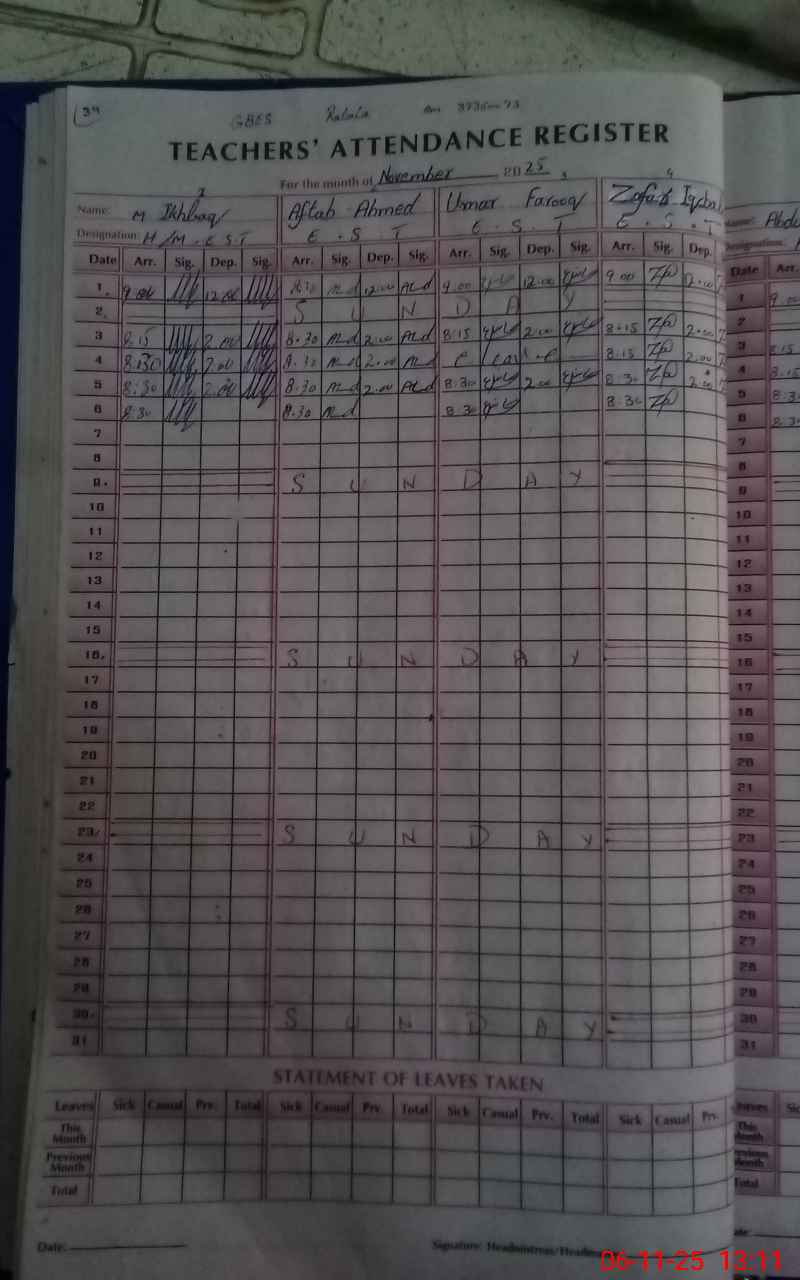 34 GBES
TEACHERS' ATTENDANCE REGISTER
For the month of November 2025
1 2 3 4
Name: M Ikhlaq Aftab Ahmed Umar Farooq Zafar Iqbal Name: Abdu
Designation: H/M. E S T E . S . T E . S . T E . S . T Designation:
Date Arr. Sig. Dep. Sig. Arr. Sig. Dep. Sig. Arr. Sig. Dep. Sig. Arr. Sig. Dep. Date Arr.
1 9.00 12.00 8.30 12.00 9.00 12.00 9.00 12.00 1 9.00
2 S U N D A Y 2
3 8.15 2.00 8.30 2.00 8.15 2.00 8.15 2.00 3 8.15
4 8.30 2.00 8.30 2.00 C leave 8.15 2.00 4 8.15
5 8:30 2.00 8.30 2.00 8.30 2.00 8.30 2.00 5 8.3
6 8:30 8.30 8.30 8.30 6 8.3
7 7
8 8
9 S U N D A Y 9
10 10
11 11
12 12
13 13
14 14
15 15
16 S U N D A Y 16
17 17
18 18
19 19
20 20
21 21
22 22
23 S U N D A Y 23
24 24
25 25
26 26
27 27
28 28
29 29
30 S U N D A Y 30
31 31
STATEMENT OF LEAVES TAKEN
Leaves Sick Casual Prv. Total Sick Casual Prv. Total Sick Casual Prv. Total Sick Casual Prv. Leaves
This Month This Month
Previous Month Previous Month
Total Total
Date: Signature: Headmistress/Headma
06-11-25 13:11